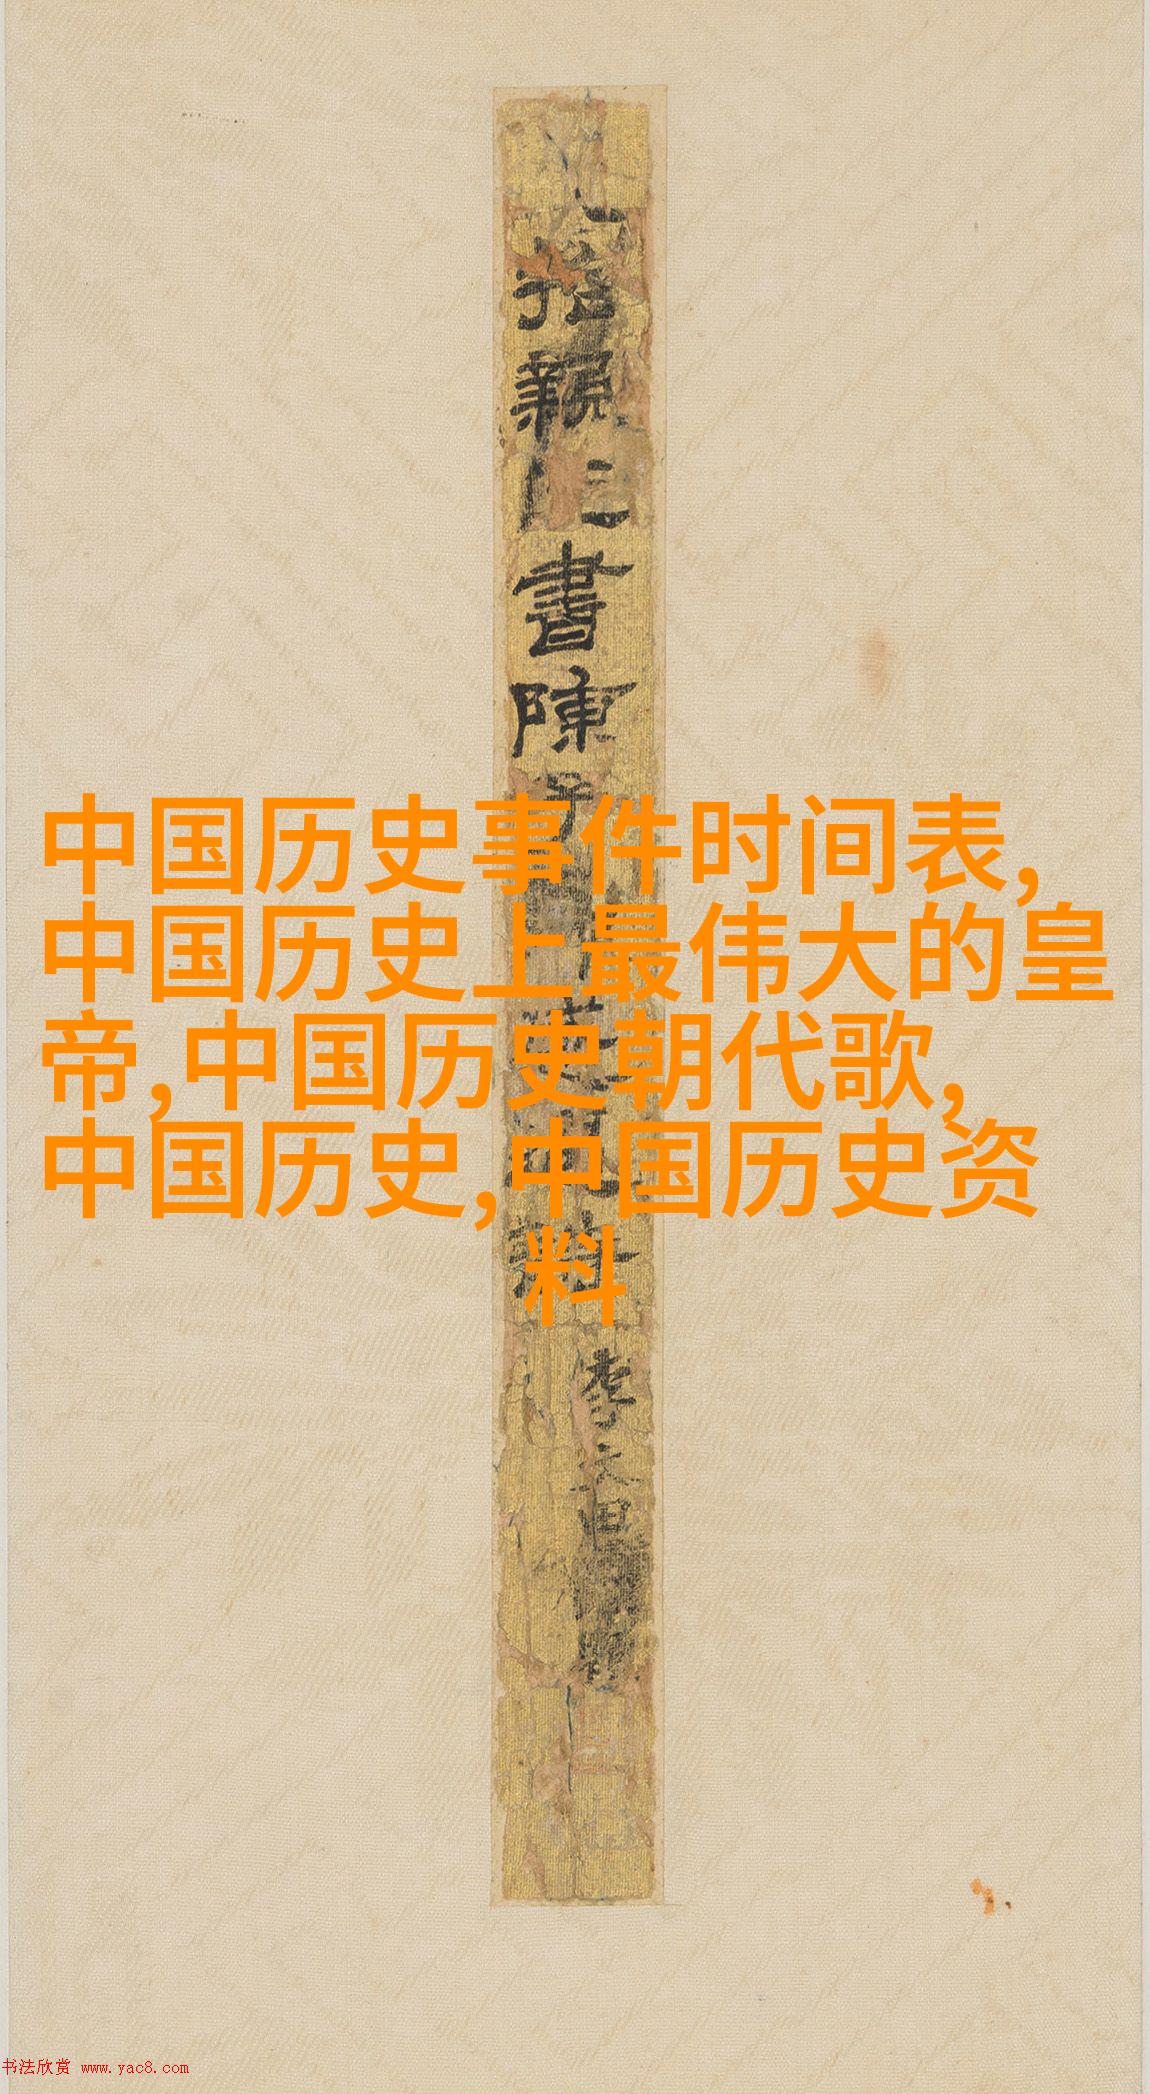 指親仁書陳子
李文田
中国历史事件时间表,
中国历史上最伟大的皇
帝,中国历史朝代歌,
中国历史,中国历史资
料
书法欣赏 www.yac8.com